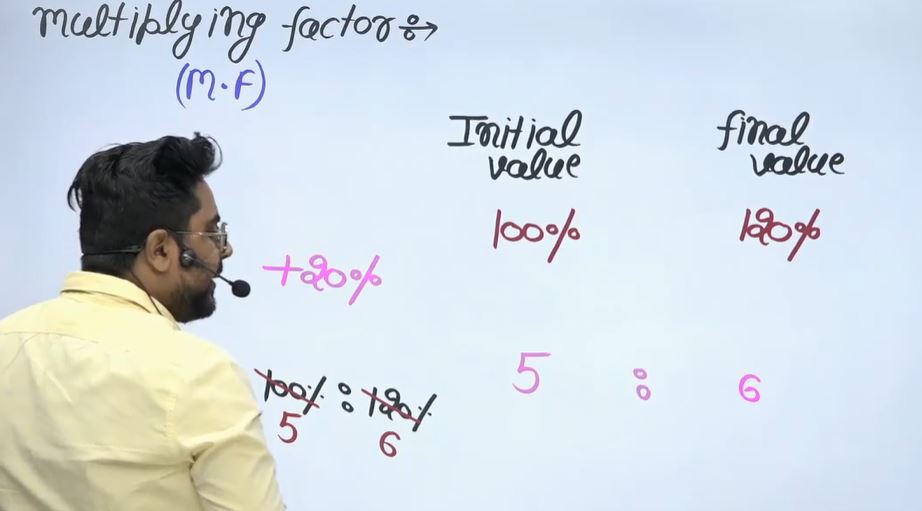 Multiplying factor ÷→
(M.F)
Initial value
final value
100%
120%
+20%
5 : 6
100% : 120%
5 6